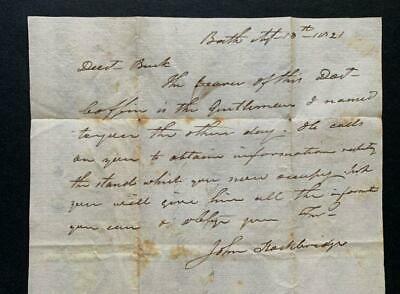 Bath 13th 1821
Buck
The bearer of this
Coffin is the Gentleman I named
to you the other day. He calls
on you to obtain information
the stand which you now occupy.
you will give him all the
you can & oblige your
John Stockbridge